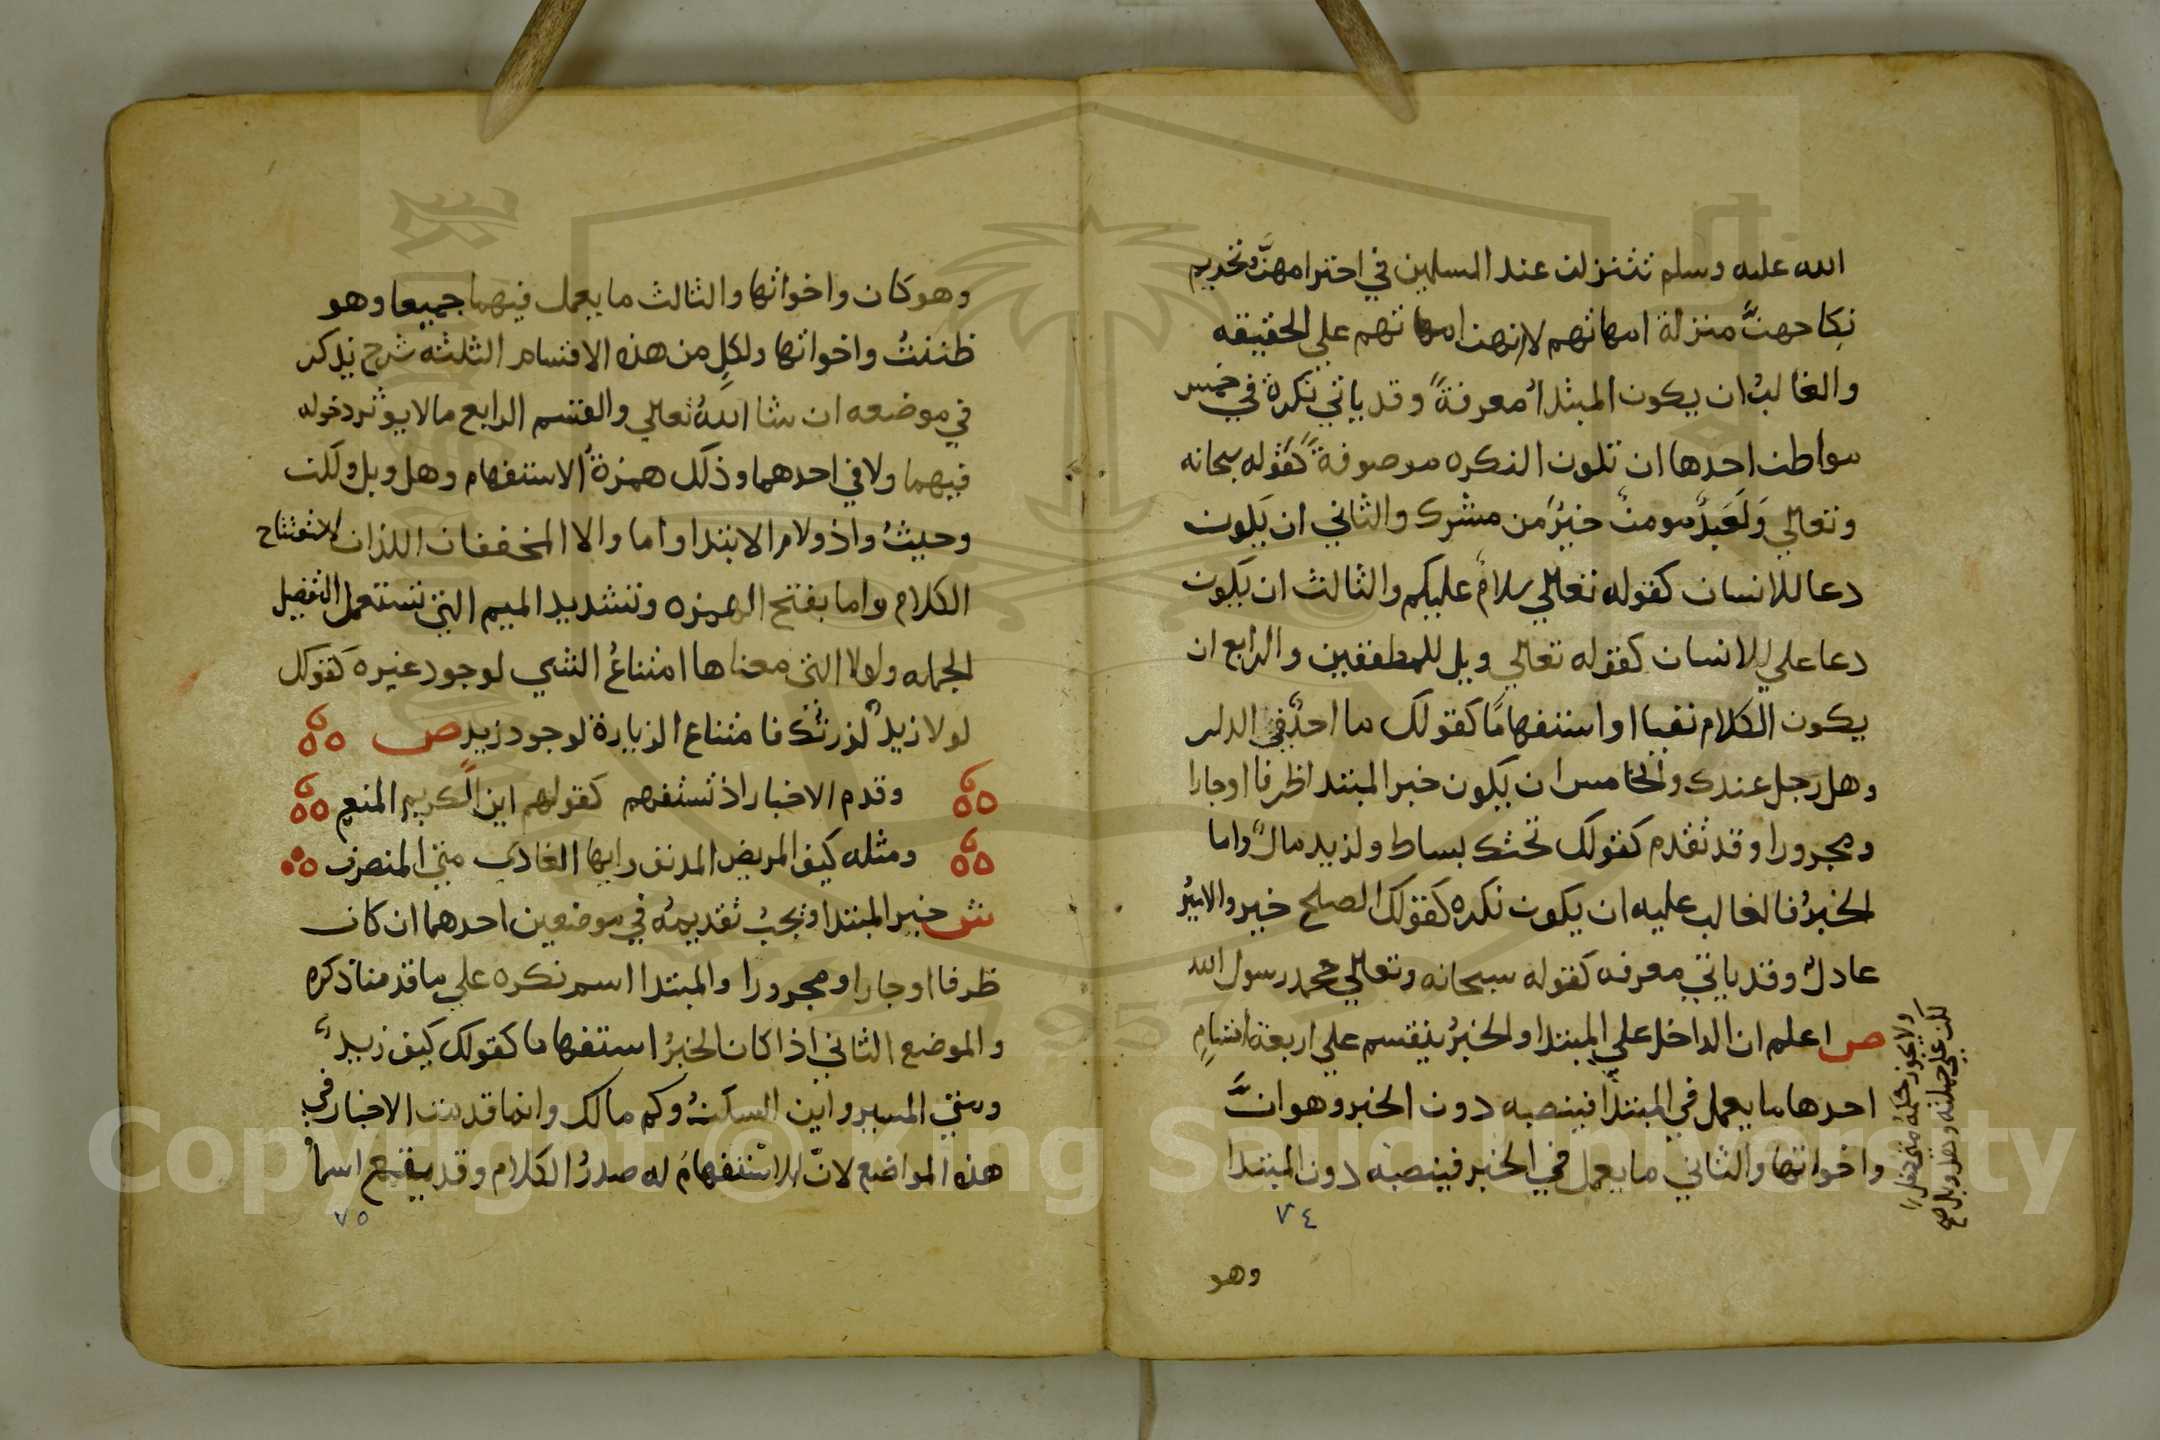 الله عليه وسلم تتنزلن عند المسلمين في احترامهنَّ وتحريم
نكاحهنَّ منزلة امهاتهم لا انهن امهاتهم علي الحقيقه
والغالبُ ان يكون المبتداُ معرفةً وقد ياتي نكرة في خمس
مواطن احدها ان تكون النكره موصوفةً كقوله سبحانه
وتعالي وَلَعَبدٌ مومنٌ خيرٌ من مشرك والثاني ان يَكون
دعا للانسان كقوله تعالي سلامٌ عليكم والثالث ان يَكون
دعا علي للانسان كقوله تعالي ويل للمطففين والرابع ان
يكون الكلام نفيا او استفهامًا كقولك ما احدٌ في الدار
وهل رجل عندك والخامس ان يكون خبر المبتدا ظرفا او جارا
ومجرورا وقد تقدم كقولك تحتك بساط ولزيد مالٌ واما
الخبرُ فالغالب عليه ان يكون نكره كقولك الصلح خير والاميرُ
عادلٌ وقد ياتي معرفه كقوله سبحانه وتعالي محمد رسول الله
ص اعلم ان الداخل علي المبتدا والخبرُ ينقسم علي اربعة اقسامٍ
احدها ما يعمل في المبتدا فينصبه دون الخبر وهو انَّ
واخواتها والثاني ما يعمل في الخبر فينصبه دون المبتدا
ولا يجوز
لكن علي جملته وهل وبل صح
٧٤
وهو
وهو كان واخواتها والثالث ما يعمل فيهما جميعا وهو
ظننتُ واخواتها ولكلٍ من هذه الاقسام الثلثه شرح يذكر
في موضعه ان شا اللهُ تعالي والقسم الرابع ما لا يوثر دخوله
فيهما ولا في احدهما وذلك همزةُ الاستفهام وهل وبل ولكن
وحيثُ واذ ولام الابتدا واما والا المخففان اللذان لاستفتاح
الكلام واما بفتح الهمزه وتشديد الميم التي تستعمل لتفصيل
الجمله ولولا التي معناها امتناعُ الشي لوجود غيره كقولك
لولا زيدٌ لزرتك فامتناع الزيارة لوجود زيدٍ ص
وقدم الاخبار اذ تستفهم كقولهم اين الكريم المنعم
ومثله كيف المريض المدنف وايها الغادي متي المنصرف
ش خبر المبتدا يجبُ تقديمهُ في موضعين احدهما ان كان
ظرفا او جارا ومجرورا والمبتدا اسم نكره علي ما قدمنا ذكره
والموضع الثاني اذا كان الخبرُ استفهاما كقولك كيف زيدٌ
ومتي المسير واين السكنُ وكم مالك وانما قدمت الاخبار في
هذه المواضع لانّ الاستفهامَ له صدرُ الكلام وقد يقع اسماً
٧٥
Copyright © King Saud University
1957